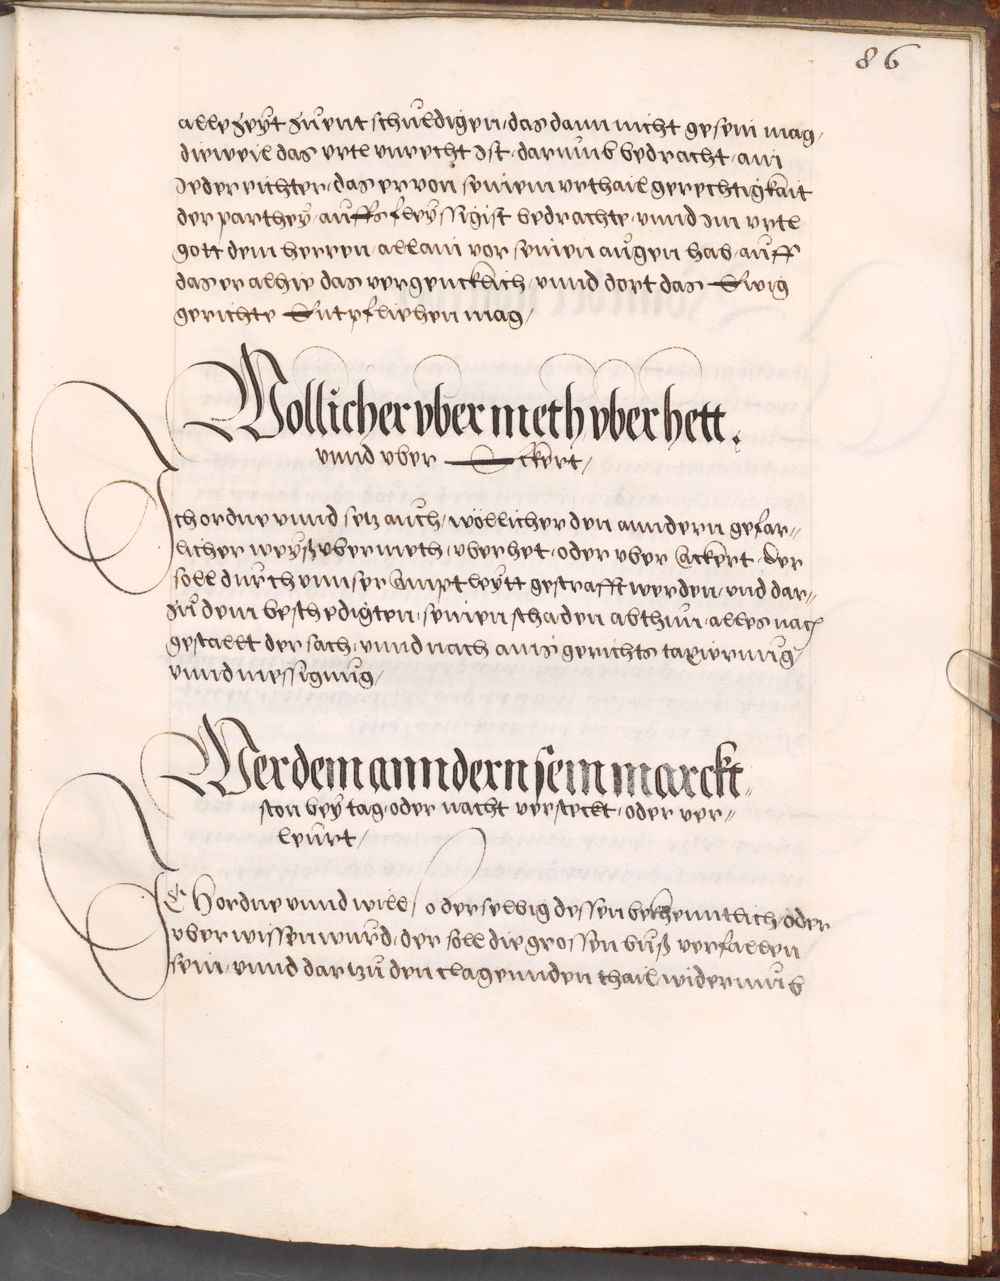 86
alle Zeyt Zuentschuldigen, das dann nicht gesein mag,
dieweil das vrtl vnrecht Ist, darumb bedracht, ain
Ieder richter, das er von seinem vrthail gerechtigkait
der parthey, auffs fleyssigist bedrachte, vnnd Im vrtl
gott dem herren, allain vor seinen augen hab, auff
das er alhie das vergencklich, vnnd dort das Ewig
gerichte Entpfliehen mag,
Wöllicher vber meth, vber hett.
vnnd vber Eckert,
Ich ordne vnnd setz auch, wöllicher den anndern gefar-
licher weyß vbermeth, vberhet, oder vber Ackert, der
soll durch vnnser Amptleytt gestrafft werden, vnd dar-
Zu dem beschedigten, seinen schaden abthun, alles nach
gestallt der sach, vnnd nach ains gerichts taxierung,
vnnd messigung,
Wer dem anndern sein marckt-
ston bey tag, oder nacht versteckt, oder ver-
leurt,
ICh ordne vnnd will, so derselbig dessen bekhenntlich, oder
vberwissen wurd, der soll die grossen buß verfallen
sein, vnnd dartzu den clagennden thail, widerumb